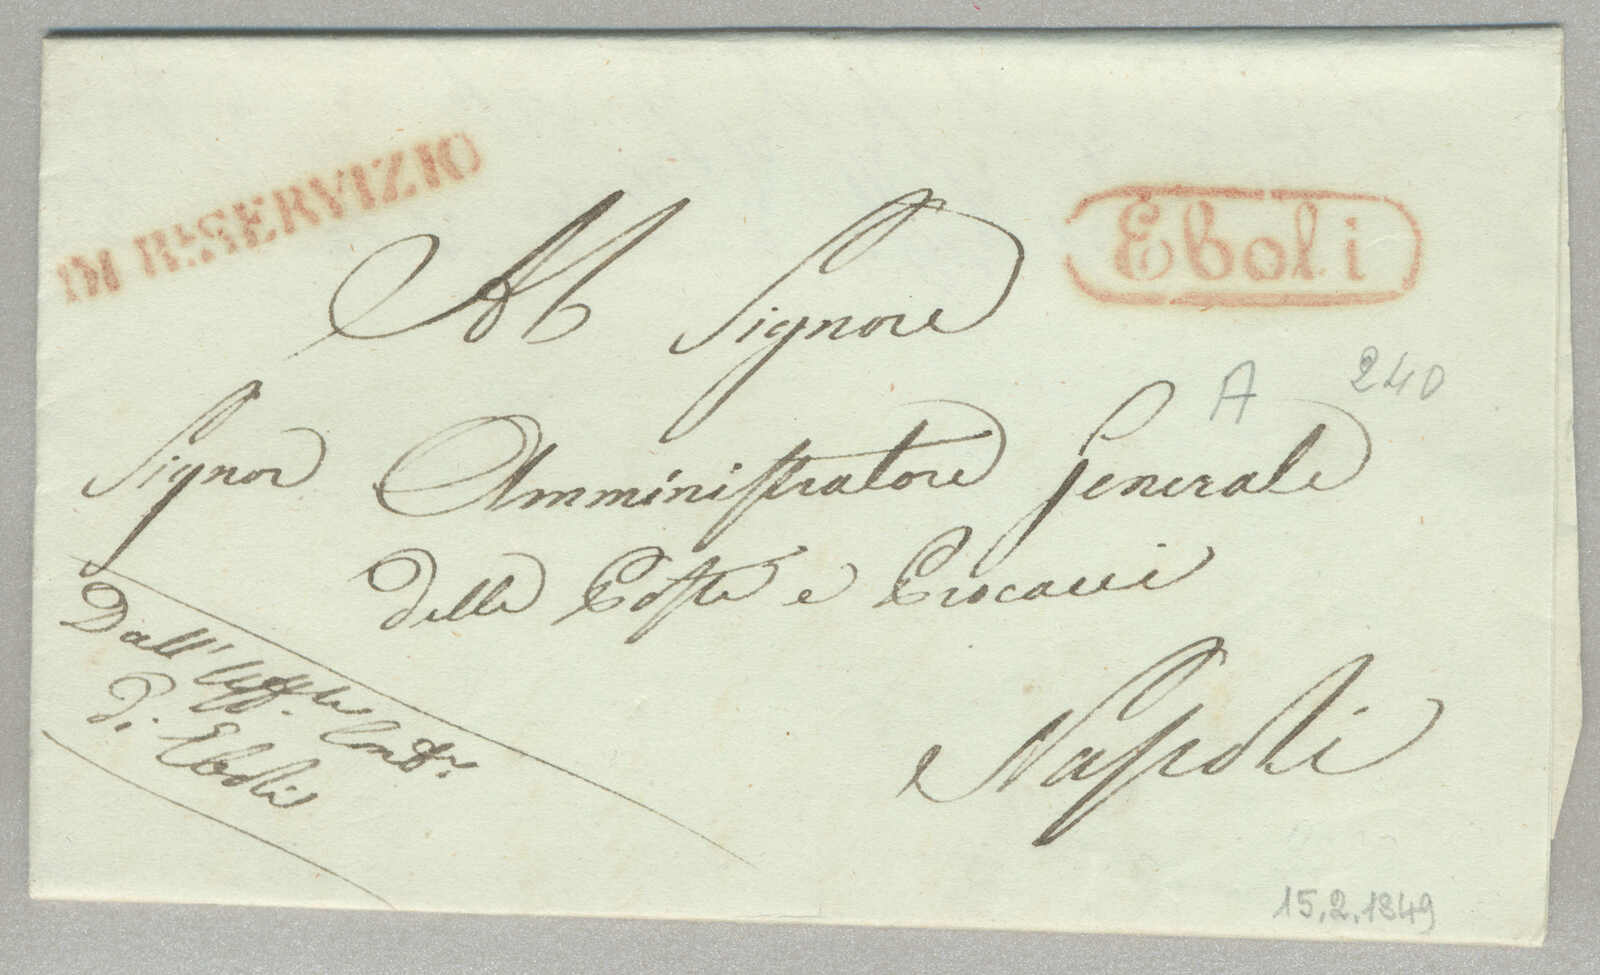 DI RL SERVIZIO
Eboli
Al Signore
A 240
Signor Amministratore Generale
delle Poste e Procacci
Dall'Uff.le Cont.re
di Eboli
Napoli
15.2.1849